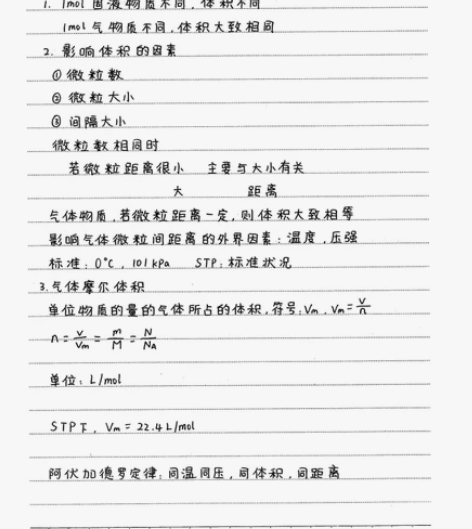 1. 1mol 固液物质不同,体积不同
1mol 气物质不同,体积大致相同
2. 影响体积的因素
① 微粒数
② 微粒大小
③ 间隔大小
微粒数相同时
若微粒距离很小 主要与大小有关
大 距离
气体物质,若微粒距离一定,则体积大致相等
影响气体微粒间距离的外界因素:温度,压强
标准:0°C,101kPa STP:标准状况
3. 气体摩尔体积
单位物质的量的气体所占的体积,符号:Vm,Vm=V/n
n=V/Vm=m/M=N/NA
单位:L/mol
STP下,Vm=22.4L/mol
阿伏加德罗定律:同温同压,同体积,同距离